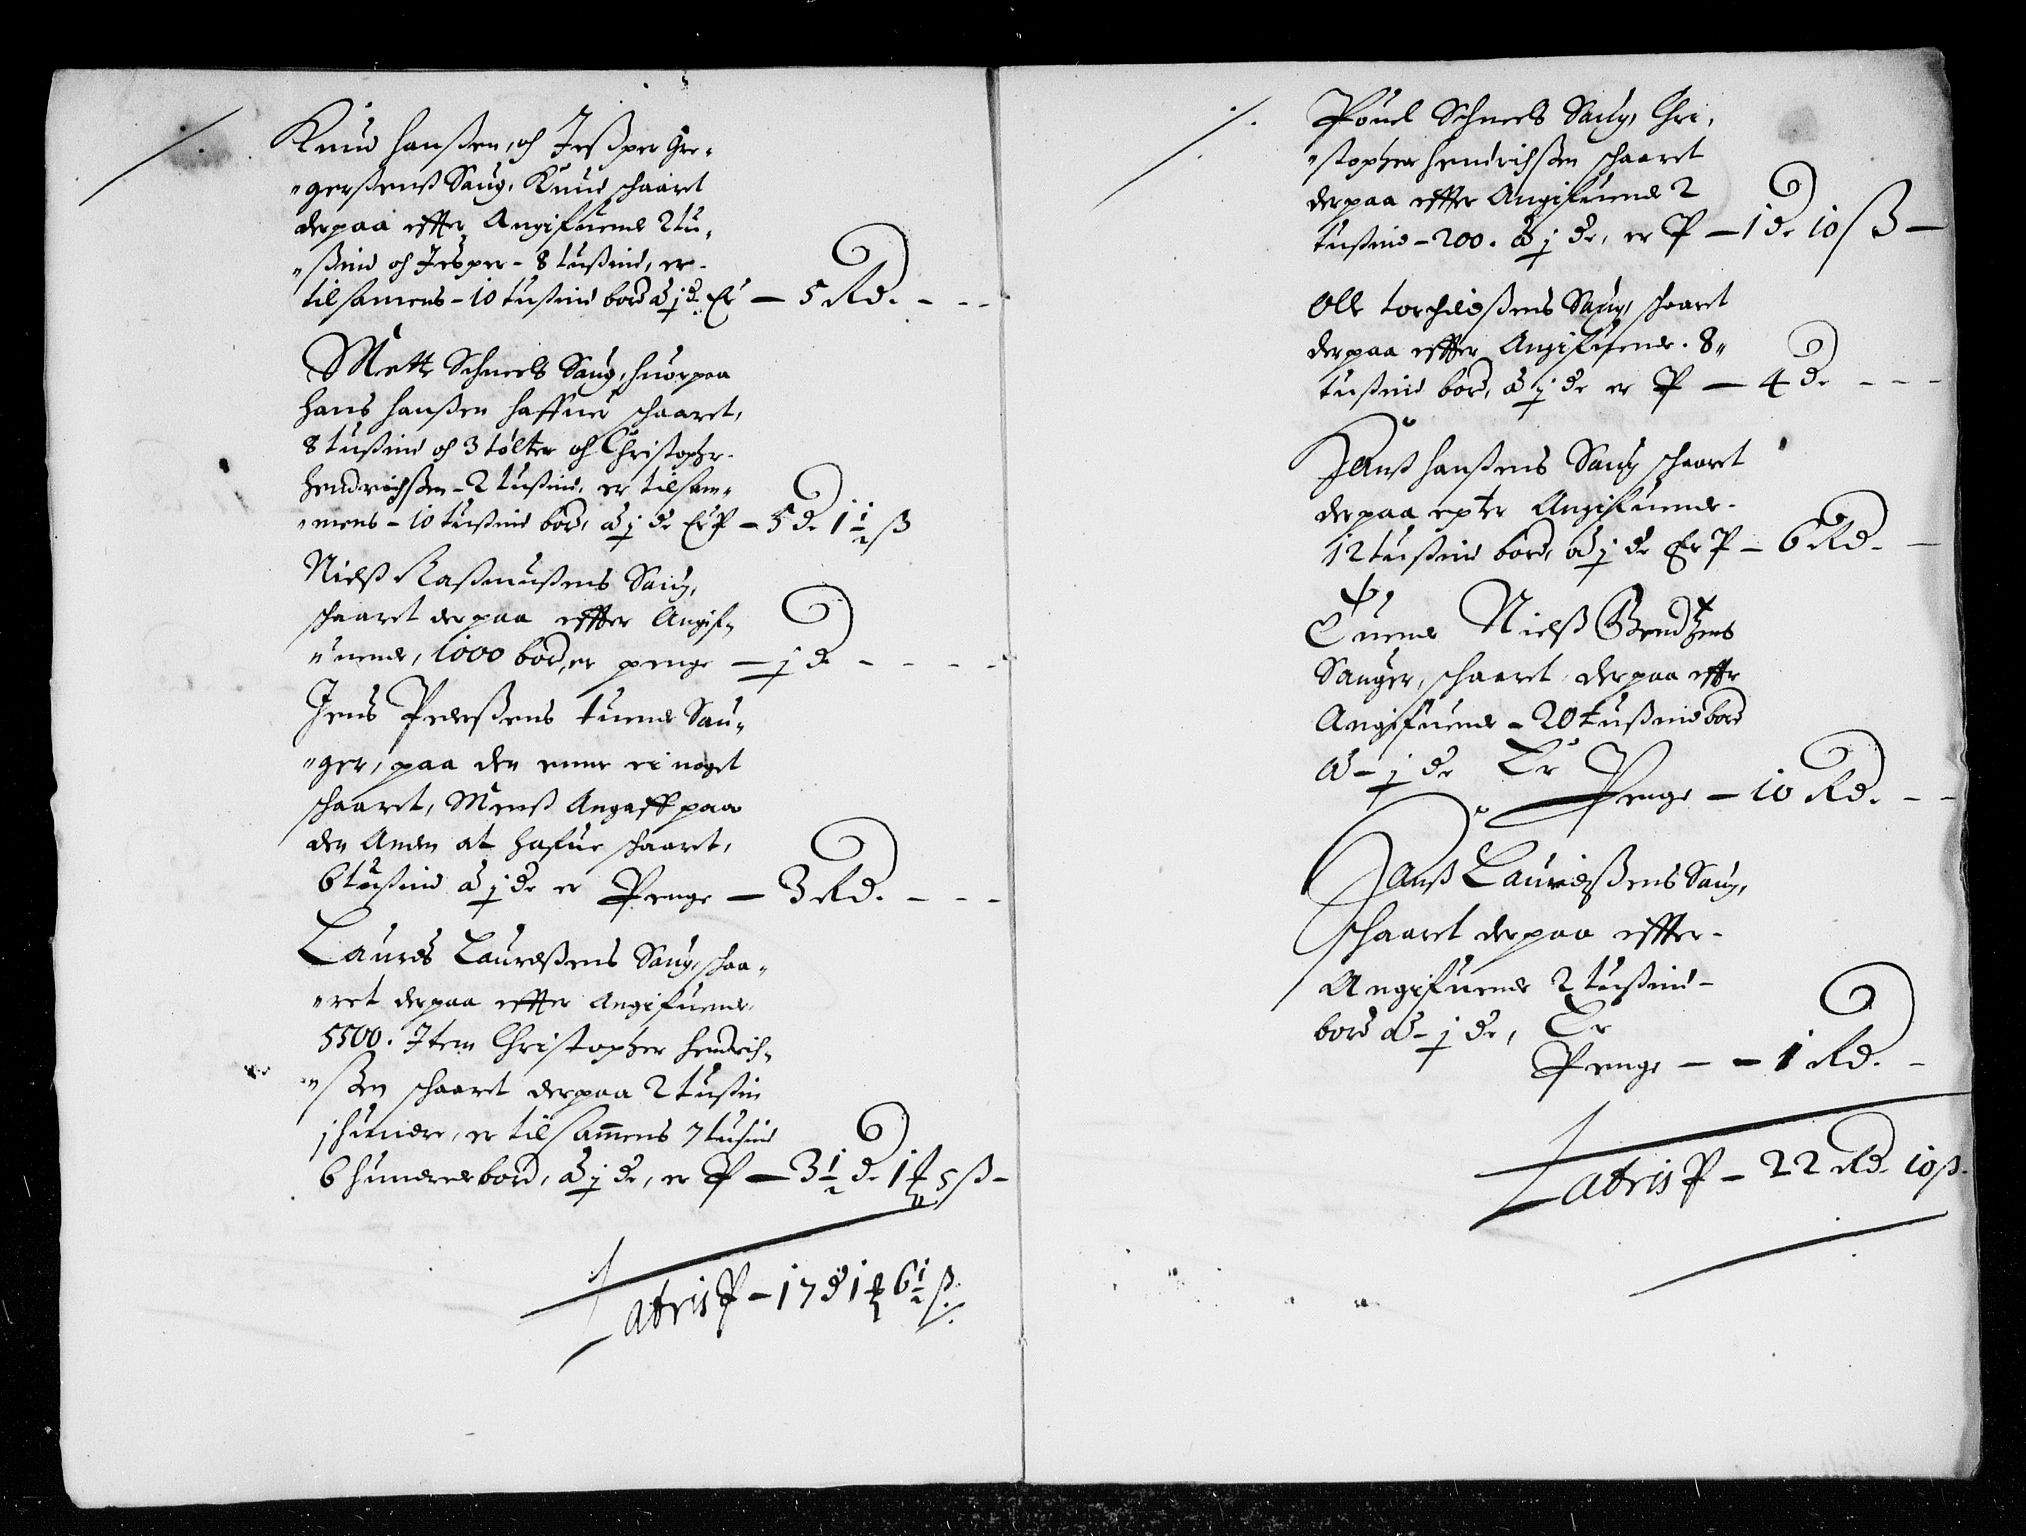 Knud Hanßen, oh Jeßper Gre-
"gerßenß Saug, Knud schaaret
derpaa effter Angifuende 2 tu-
"ßind oh Jesper - 8 tußind, er
tilsamens - 10 tußind bord à ½ dr Er - 5 Rd. - - -
Mette Schneels Saug, huorpaa
Hans Hanßen haffuer schaaret,
8 tußind oh 3 tølter oh Christopher
Hendrichßen - 2 tußind, er tilsam-
"mens - 10 tußind bord, à ½ dr Er P - 5 dr 1½ ß
Nielß Raßmußens Saug,
schaaret derpaa effter Angif-
"uende, 1000 bord, er penge - ½ dr - - - -
Jens Pederßens tuende Sau-
"ger, paa den enne ei noget
schaaret, Menß Angaff paa
den Anden at hafue schaaret,
6 tußind à ½ dr er Penge - 3 Rd. - - -
Laurds Laurdßens Saug, schaa-
"ret derpaa effter Angifuende
5500. Item Christopher Hendrich-
"ßen schaaret derpaa 2 tußin
1 hundre, er tilsammens 7 tusind
6 hundrede bord, à ½ dr, er P - 3½ dr 1 5 ß -
Latris P - 17 d 1 6½ ß.
Pouel Schneels Saug, Chri-
"stopher Hendrichßen schaaret
derpaa effter Angifuende 2
tußind - 200. à ½ dr, er P - 1 dr 10 ß -
Olle Torchildßens Saug, schaaret
derpaa effter Angifuende. 8"
tußind bord, à ½ dr er P - 4 dr - - -
Hanß Hanßens Saug schaaret
derpaa epter Angifuende
12 tußind bord, à ½ dr Er P - 6 Rd. -
Tuende Nielß Bendtzens
Sauger, schaaret derpaa effter
Angifuende - 20 tußind bord
à - ½ dr Er
Penge - 10 Rd. - -
Hanß Lauridßens Saug,
schaaret derpaa effter
Angifuende 2 tußind -
bord à - ½ dr, Er
Penge - - 1 Rd. -
Latris P - 22 Rd. 10 ß.